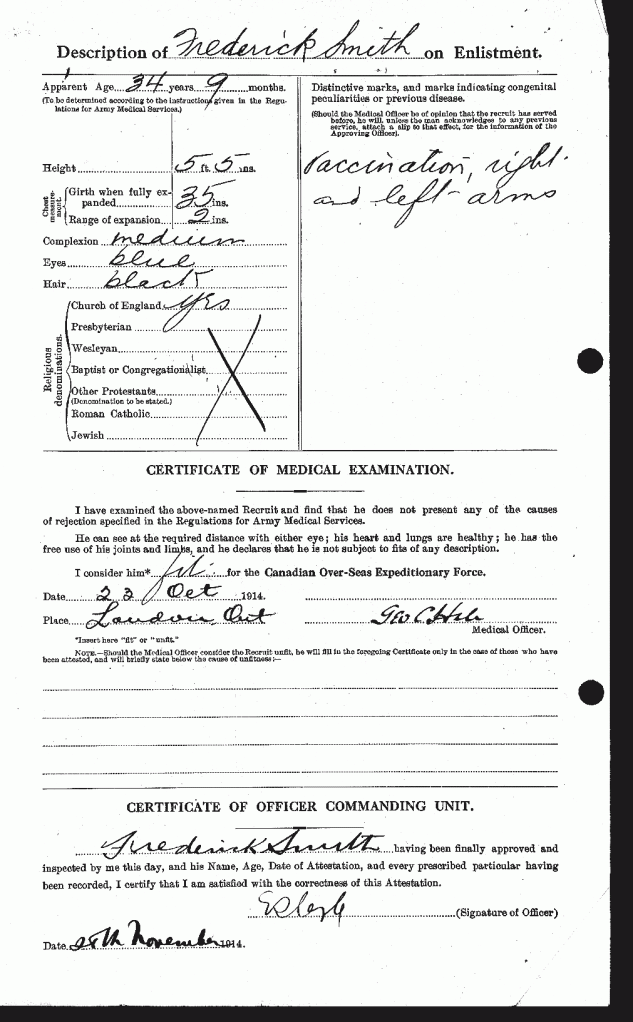 Description of Frederick Smith on Enlistment.
Apparent Age 34 years 9 months.
(To be determined according to the instructions given in the Regulations for Army Medical Services.)
Height 5 ft. 5 ins.
Chest measurement.
Girth when fully expanded 35 ins.
Range of expansion 2 ins.
Complexion medium
Eyes blue
Hair black
Religious denominations.
Church of England yes
Presbyterian
Wesleyan
Baptist or Congregationalist
Other Protestants
(Denomination to be stated.)
Roman Catholic
Jewish
Distinctive marks, and marks indicating congenital
peculiarities or previous disease.
(Should the Medical Officer be of opinion that the recruit has served
before, he will, unless the man acknowledges to any previous
service, attach a slip to that effect, for the information of the
Approving Officer).
Vaccination, right
and left arms
CERTIFICATE OF MEDICAL EXAMINATION.
I have examined the above-named Recruit and find that he does not present any of the causes
of rejection specified in the Regulations for Army Medical Services.
He can see at the required distance with either eye; his heart and lungs are healthy; he has the
free use of his joints and limbs, and he declares that he is not subject to fits of any description.
I consider him* fit for the Canadian Over-Seas Expeditionary Force.
Date 23 Oct 1914.
Place London, Ont
Medical Officer.
*Insert here "fit" or "unfit."
NOTE.—Should the Medical Officer consider the Recruit unfit, he will fill in the foregoing Certificate only in the case of those who have
been attested, and will briefly state below the cause of unfitness:—
CERTIFICATE OF OFFICER COMMANDING UNIT.
Frederick Smith having been finally approved and
inspected by me this day, and his Name, Age, Date of Attestation, and every prescribed particular having
been recorded, I certify that I am satisfied with the correctness of this Attestation.
(Signature of Officer)
Date 28th November 1914.